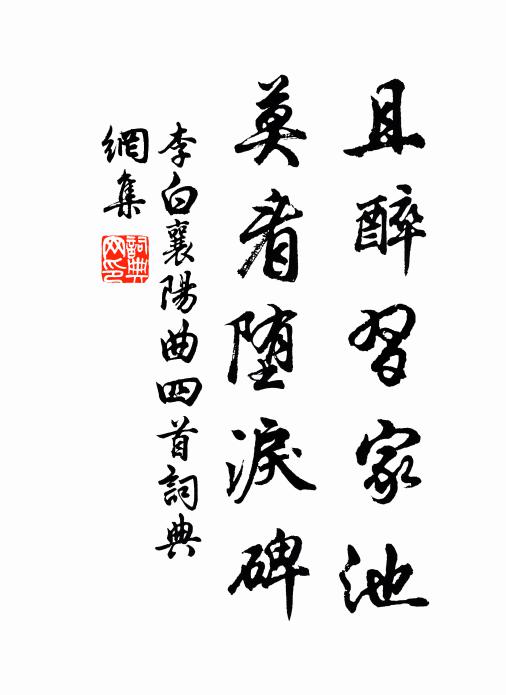 且醉習家池
莫看堕淚碑
李白襄陽曲四首詞典
網集
詞典
网印